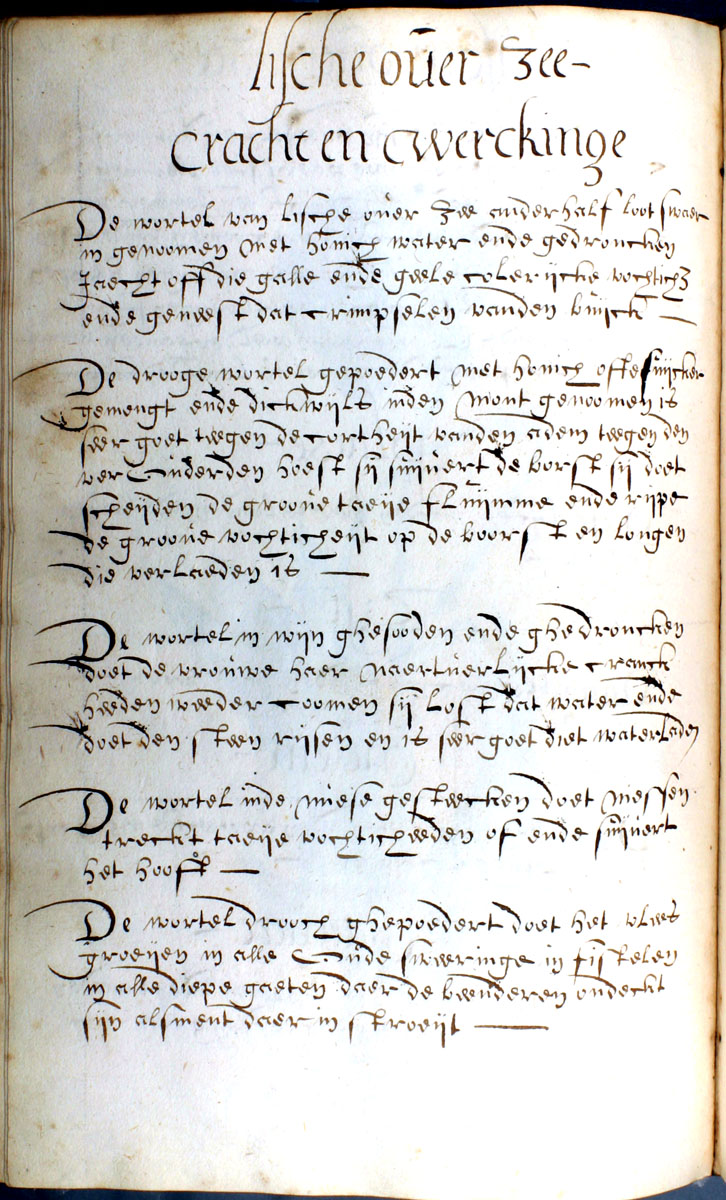 lische ouer zee-
cracht en cwerckinge
De wortel van lische ouer zee anderhalf loot swaer
in genoomen met honich water ende gedroncken
Jaecht off die galle ende geele colerijcke vochtich3
ende geneest dat crimpselen vanden buijck —
De drooge wortel gepoedert met honich ofte suijcker
gemengt ende dickwijls inden mont genoomen is
seer goet teegen de cortheijt vanden adem teegen den
verouderden hoest sij suijuert de borst sij doet
scheijden de groove taeije fluijmme ende rijpe
de grooue vochticheijt op de boorst en longen
die verlaeden is —
De wortel in wijn ghesooden ende ghedroncken
doet de vrouwe haer naertuerlijcke cranck
heeden weeder coomen sij lost dat water ende
doet den steen rijsen en is seer goet diet waterladen
De wortel inde nuese gesteecken doet niessen
treckt taeije vochticheeden of ende suijuert
het hooft —
De wortel drooch ghepoedert doet het vlees
groeijen in alle oude sweeringe in fistelen
in alle diepe gaeten daer de beenderen ondeckt
sijn alsment daer in stroeijt —